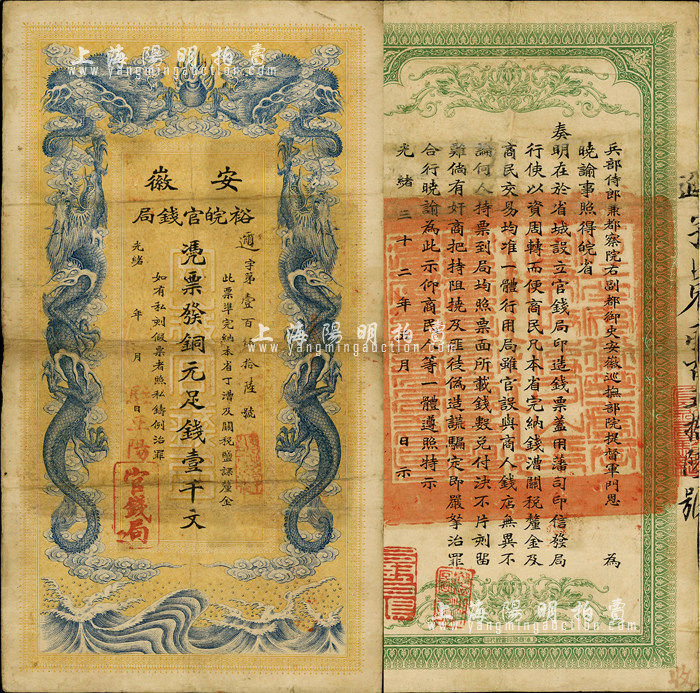 上海陽明拍賣
www.yangmingauction.com
安徽
裕皖官錢局
憑票發銅元足錢壹千文
字第壹百 拾陸號
此票準完納本省丁漕及關稅鹽課釐金
如有私刻假票者照私鑄例治罪
光緒 年 月 日
官錢局
兵部侍郎兼都察院右副都御史安徽巡撫部院提督軍門恩 為
曉諭事照得皖省
奏明在於省城設立官錢局印造錢票蓋用藩司印信發局
行使以資周轉而便商民凡本省完納錢漕關稅釐金及
商民交易均准一體行用局雖官設與商人錢店無異不
論何人持票到局均照票面所載錢數兌付決不片刻留
難倘有奸商把持阻撓及匪徒偽造謊騙定即嚴拏治罪
合行曉諭為此示仰商民人等一體遵照特示
光緒三十二年 月 日示
上海陽明拍賣
www.yangmingauction.com
上海陽明拍賣
www.yangmingauction.com